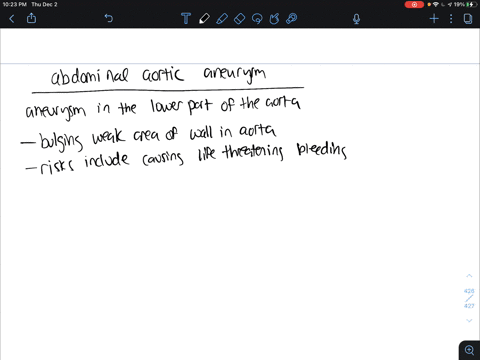 10:23 PM Thu Dec 2
19%
abdominal aortic aneurym
aneurysm in the lower part of the aorta
- bulging weak area of wall in aorta
- risks include causing life threatening bleeding
426
427